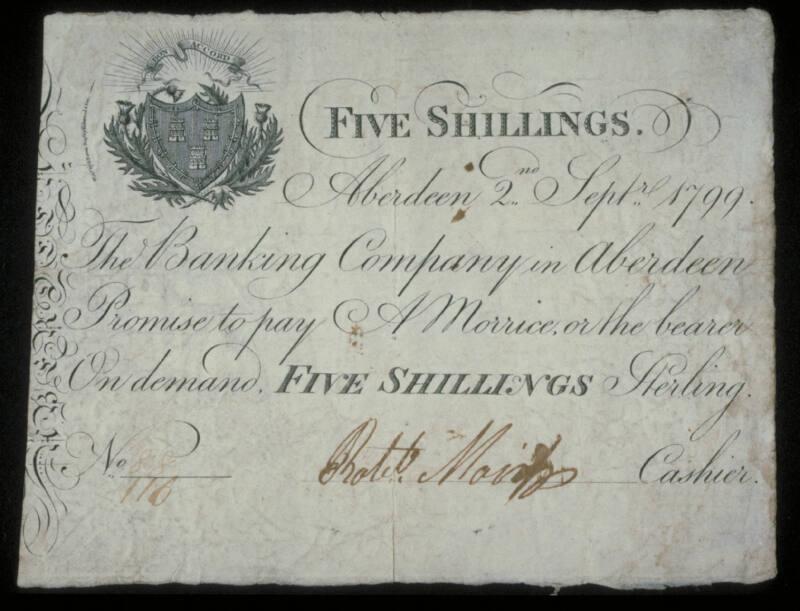 BON ACCORD
FIVE SHILLINGS.
Aberdeen 2.no Sept.r 1799.
The Banking Company in Aberdeen
Promise to pay A Morrice, or the bearer
On demand, FIVE SHILLINGS Sterling.
No 
116
Robt. Cashier.